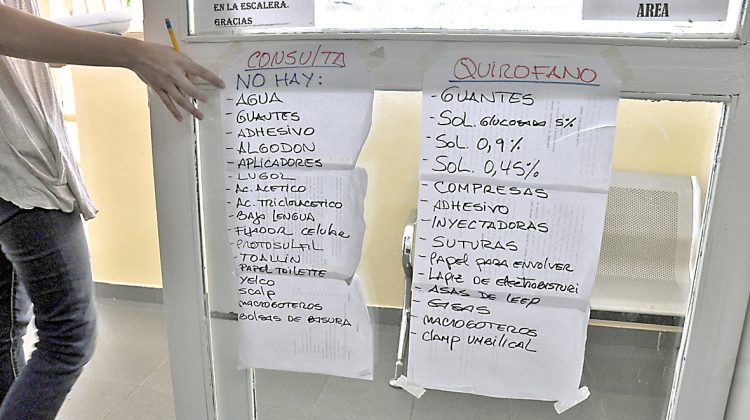 EN LA ESCALERA.
GRACIAS
AREA
CONSULTA
NO HAY:
- AGUA
- GUANTES
- ADHESIVO
- ALGODON
- APLICADORES
- LUGOL
- AC. ACETICO
- AC. TRICLOROACETICO
- BAJA LENGUA
- FIJADOR CELULAR
- PROTOSULFIL
- TOALLIN
- PAPEL TOILETTE
- YELCO
- SCALP
- MACROGOTEROS
- BOLSAS DE BASURA
QUIROFANO
- GUANTES
- SOL. GLUCOSADA 5%
- SOL. 0,9%
- SOL. 0,45%
- COMPRESAS
- ADHESIVO
- INYECTADORAS
- SUTURAS
- PAPEL PARA ENVOLVER
- LAPIZ DE ELECTROBISTURI
- ASAS DE LEEP
- GASAS
- MACROGOTEROS
- CLAMP UMBILICAL